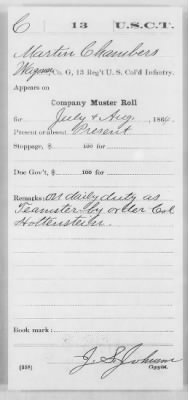 C 13 U.S.C.T.
Martin Chambers
Co. G, 13 Reg't U. S. Col'd Infantry.
Appears on
Company Muster Roll
for July & Aug, 1864
Present or absent Present
Stoppage, $ 100 for
Due Gov't, $ 100 for
Remarks: On daily duty as
Teamster by order Col
Hottenstein.
Book mark:
J. S. Johnson
(358) Copyist.